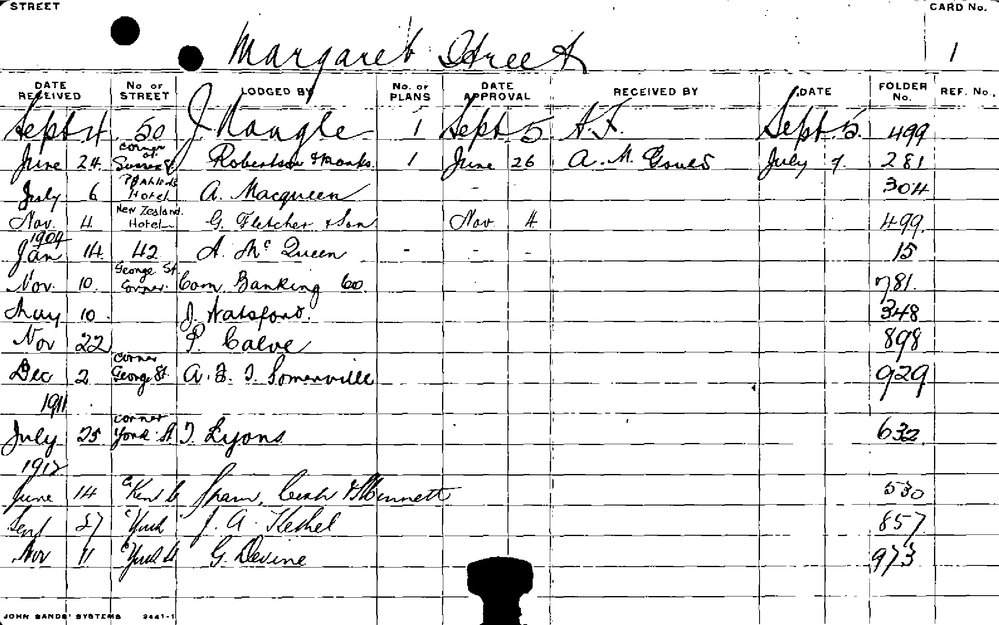 STREET CARD No.
Margaret Street 1
DATE RECEIVED No OF STREET LODGED BY No. OF PLANS DATE APPROVAL RECEIVED BY DATE FOLDER No. REF. No.
Sept 4 50 J Naughle 1 Sept. 5 A.F. Sept 5. 499
June 24 corner of Sussex St Robertson & Marks 1 June 26 A. M. Gould July 7. 281
July 6 Hotel A. Macqueen - 304
Nov. 4 New Zealand Hotel G. Fletcher & Son Nov 4 499.
1909
Jan 14. 42 A. McQueen - - - 15
Nov. 10. George St. Corner. Com. Banking Co. 781.
May 10 J. Hatsford. 348
Nov 22 P. Calve 898
Dec 2 corner George St. A. F. T. Somerville 929
1911
July 25 corner York St T. Lyons 632.
1912
June 14 Kent St 530
Sept 27 "York" J. A. Keshel 857
Nov 11 York St G. Devine 973
JOHN SANDS' SYSTEMS 2441-1